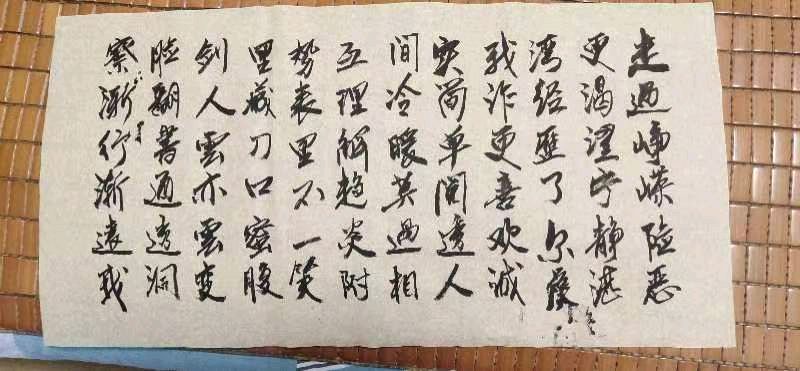 走過崢嶸險恶
更渴望宁静港
湾经歷了尔虞
我诈更喜欢诚
实简单阅透人
间冷暖莫過相
互理解趋炎附
势表里不一笑
里藏刀口蜜腹
剑人雲亦雲变
脸翻書通透洞
察渐行渐遠我